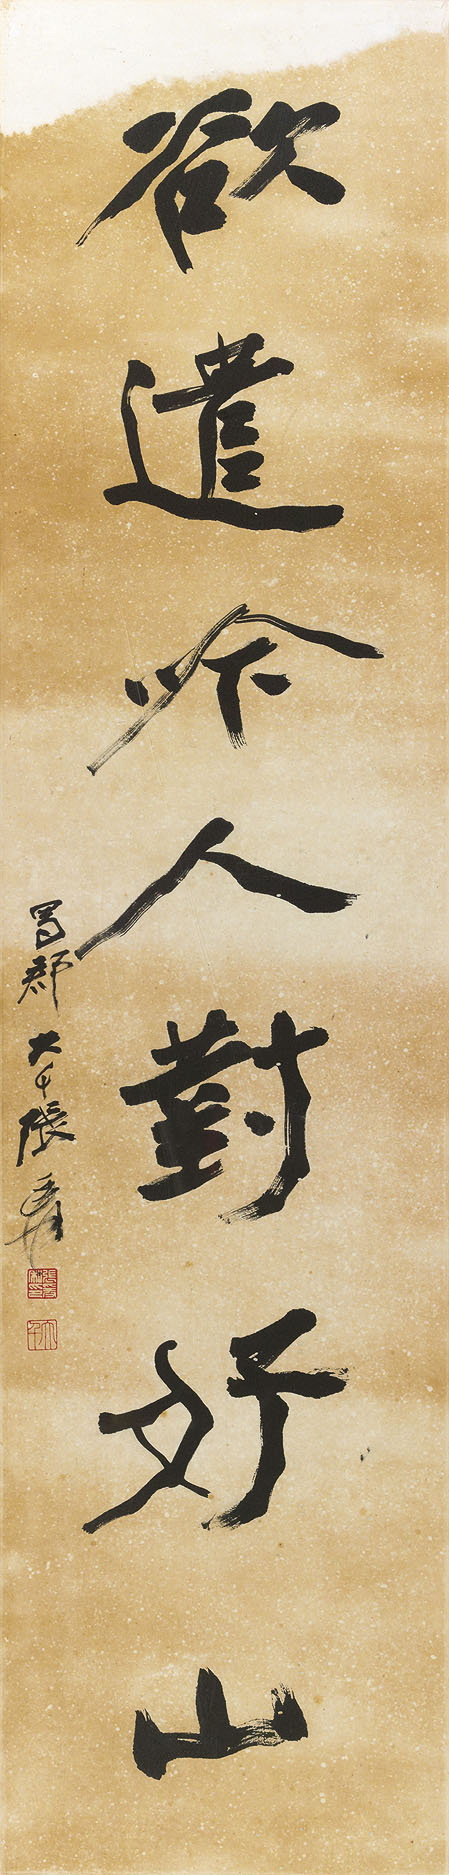 欲遣吟人對好山
蜀郡大千張爰